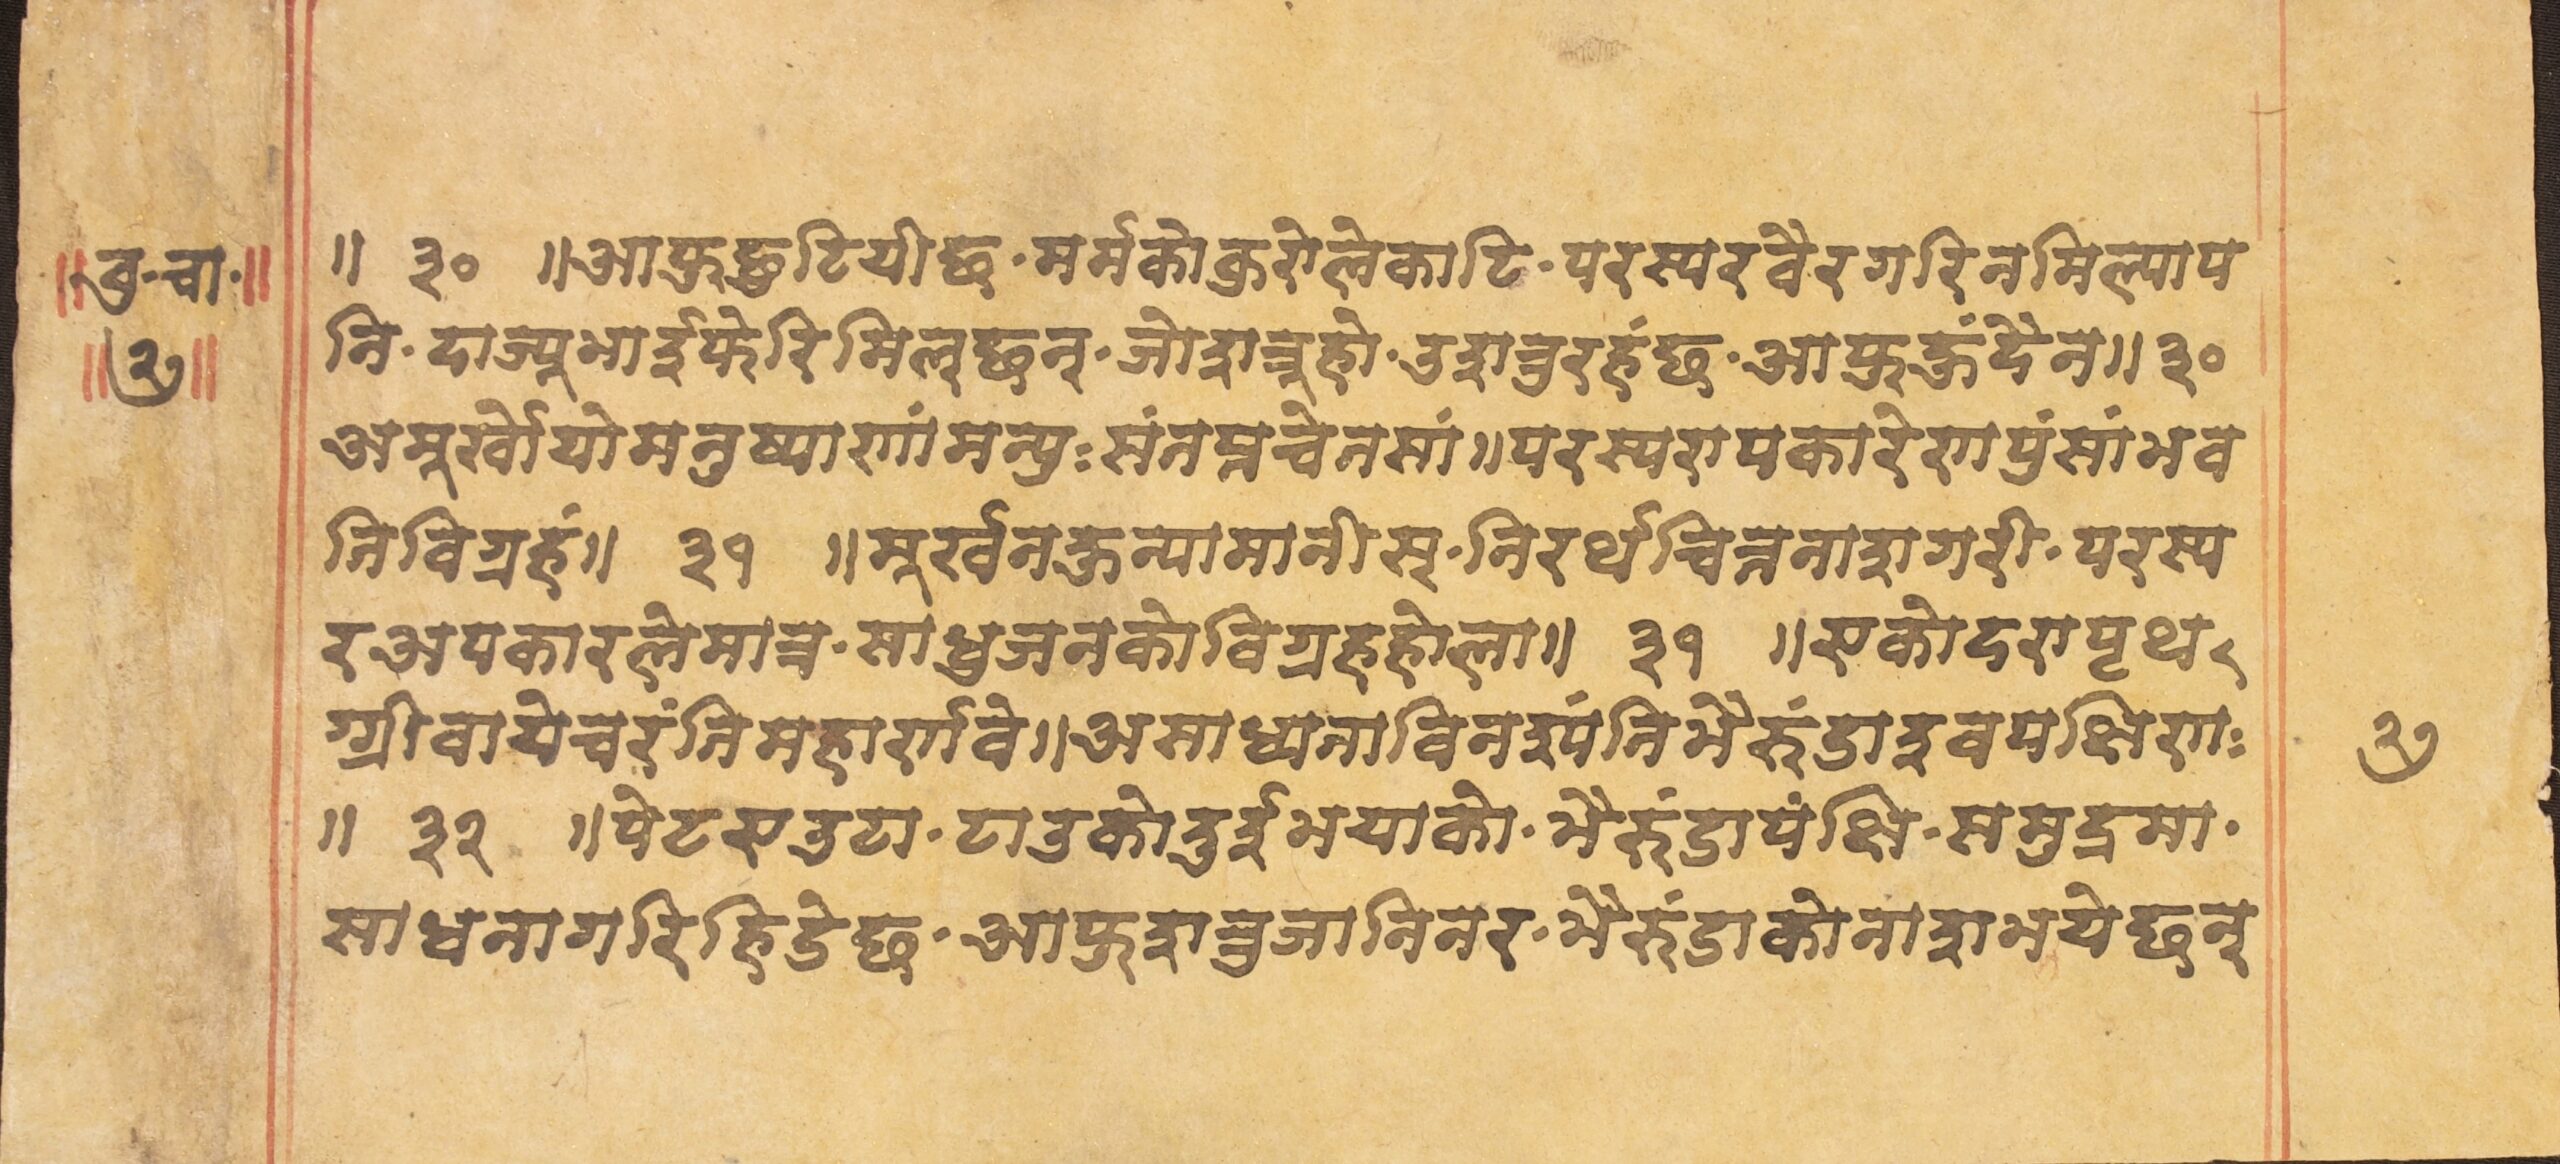 ॥वु·चा·॥
॥७॥
॥ ३० ॥आफुछुटियीछ·मर्मकोकुरोलेकाटि·परस्परवैरगरिनमिल्याप
नि·दाज्यूभाईफेरिमिल्छन्·जोशत्रूहो·उशत्रुरहंछ·आफुक्तंदैन॥३०
अमूर्खोयोमनुष्याणांमन्युःसंनप्तचेतसां॥परस्परापकारेणपुंसांभव
तिविग्रहं॥ ३१ ॥मूर्खनक्तन्यामानीस्·निरर्थचित्तनाशगरी·परस्प
रअपकारलेमात्र·साधुजनकोविग्रहहोला॥ ३१ ॥एकोदरापृथ
ग्ग्रीवायेचरंतिमहार्णवे॥असाध्यनाविनश्यंतिभैरुंडाइवपक्षिणः
॥ ३२ ॥पेटएउटा·टाउकोदुईभयाको·भैरुंडापंक्षि·समुद्रमा·
साधनागरिहिडेछ·आफुशत्रुजानिनर·भैरुंडाकोनाशभयेछन्
७